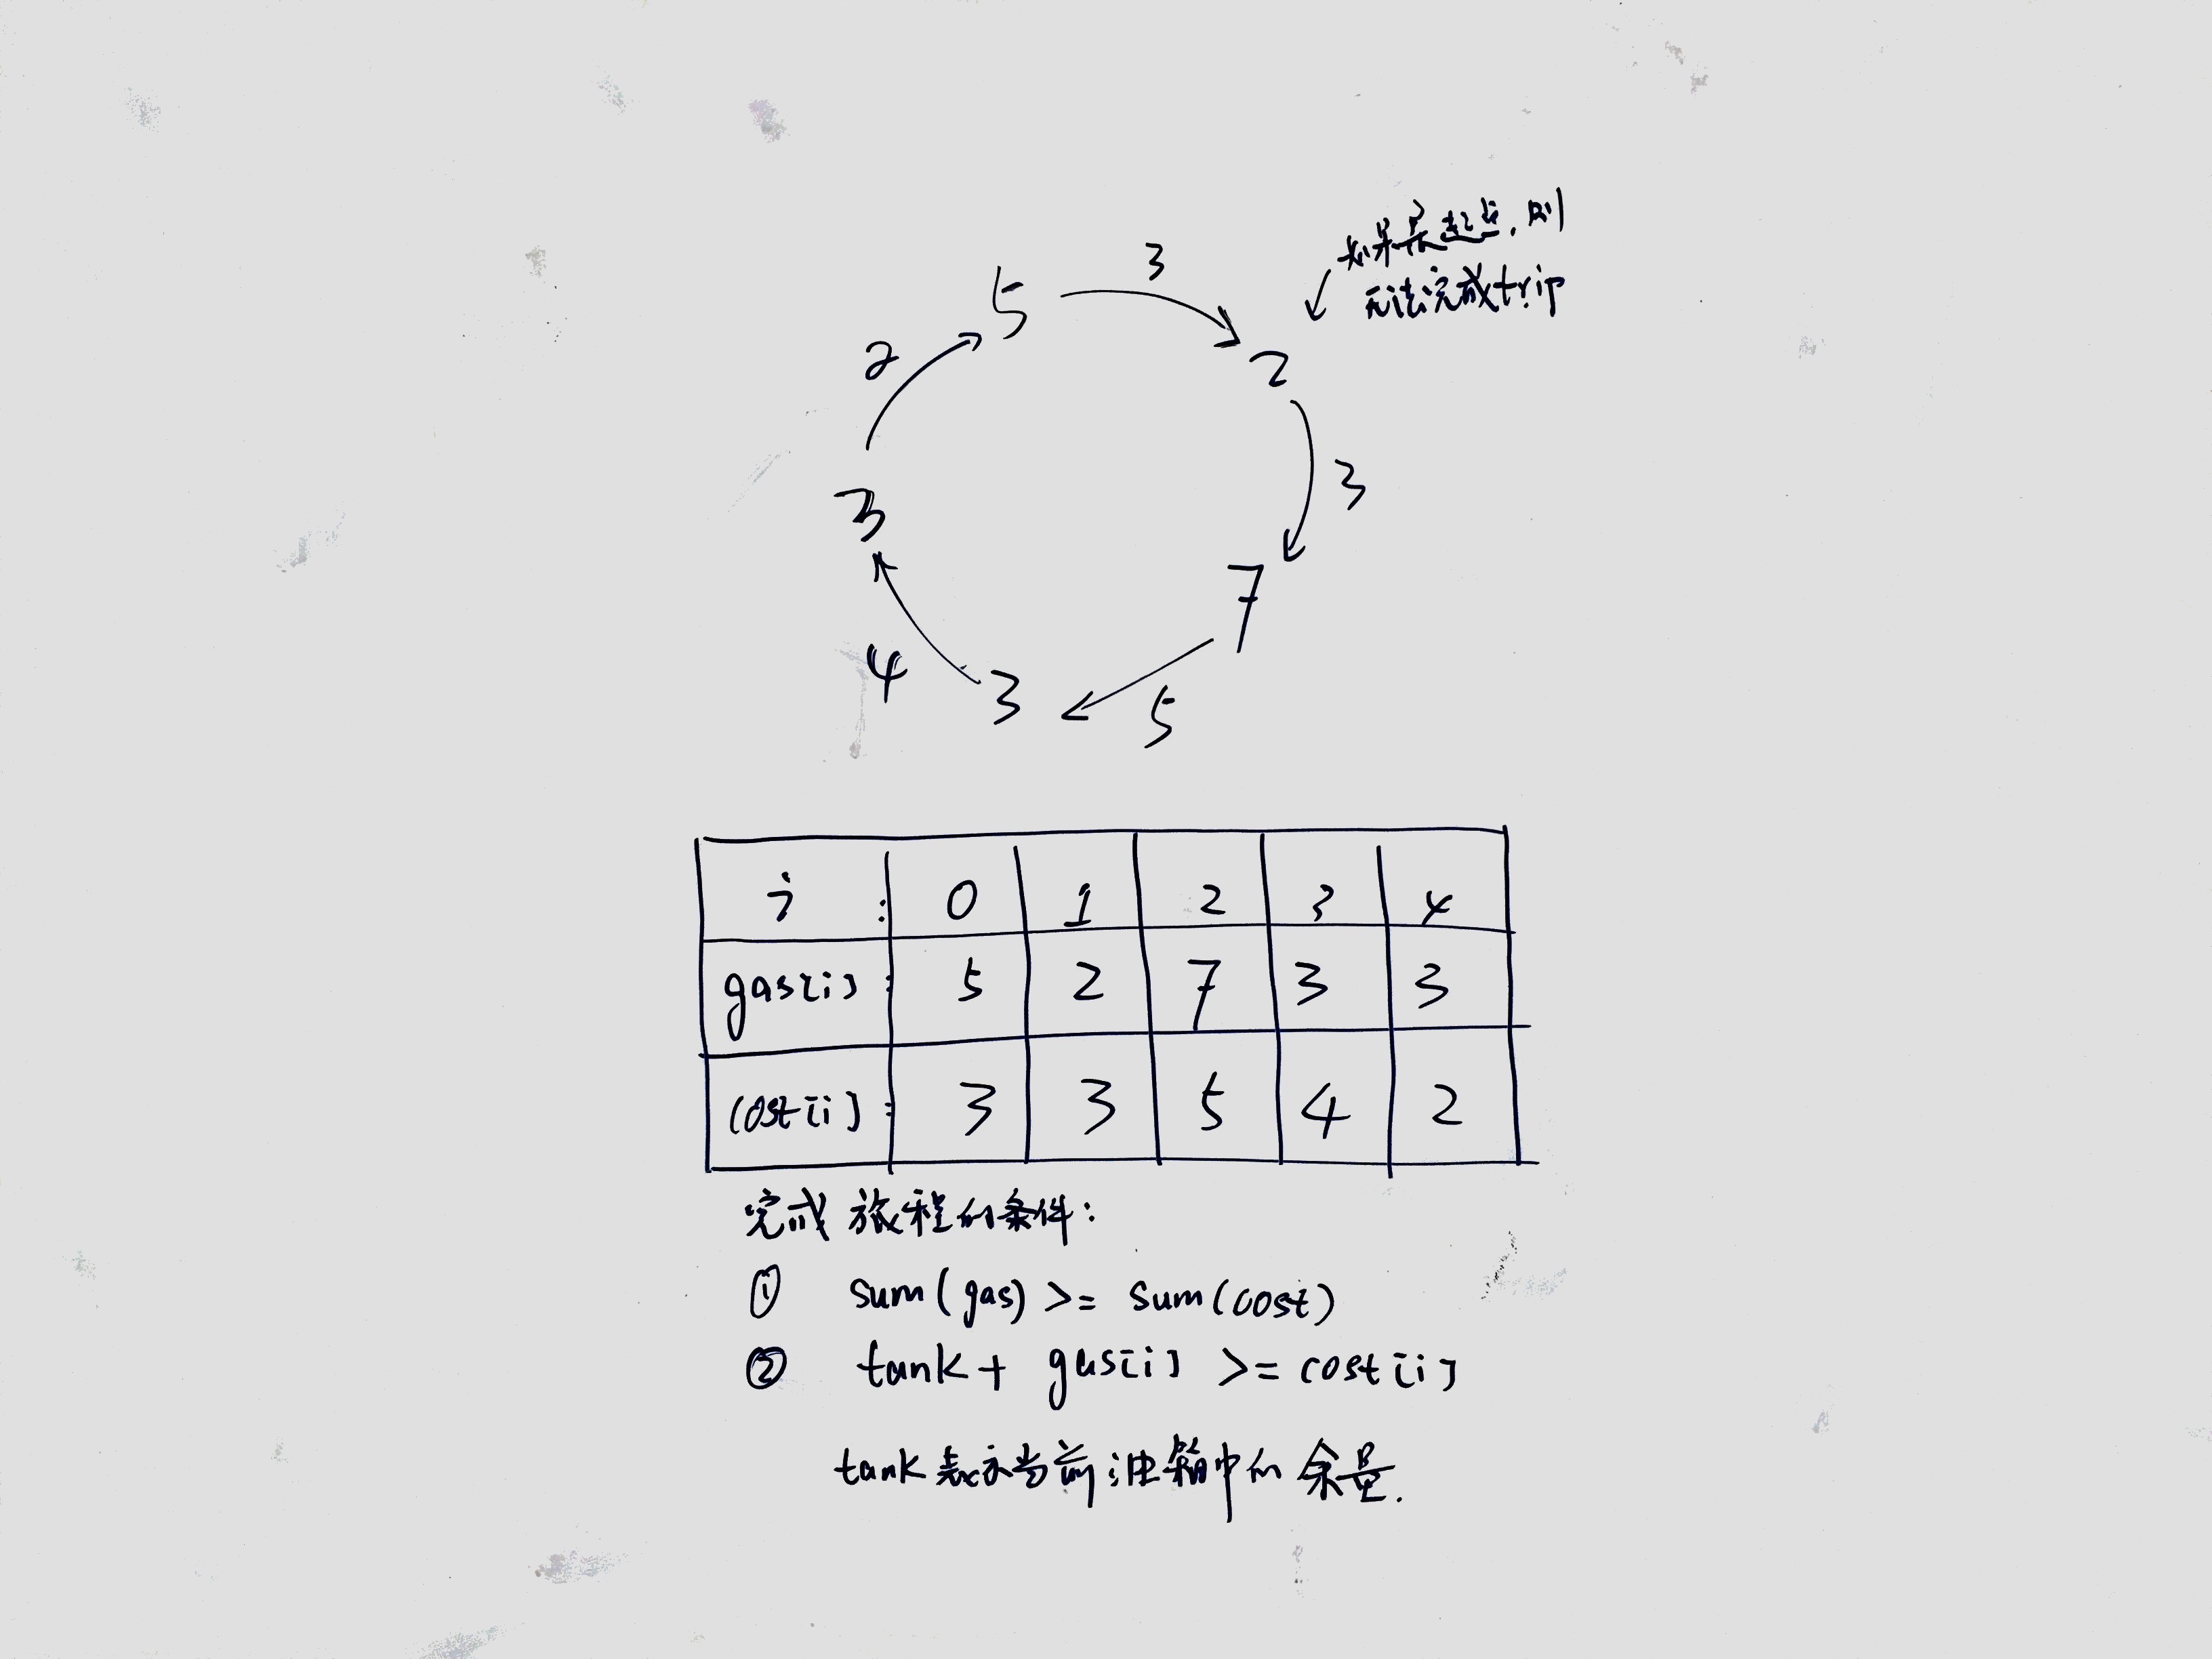 如果是起点,则
无法完成trip
3
5
2
2
3
3
7
4
3
5
i : 0 1 2 3 4
gas[i] : 5 2 7 3 3
cost[i] : 3 3 5 4 2
完成旅程的条件:
① sum(gas) >= sum(cost)
② tank + gas[i] >= cost[i]
tank表示当前油箱中的余量.